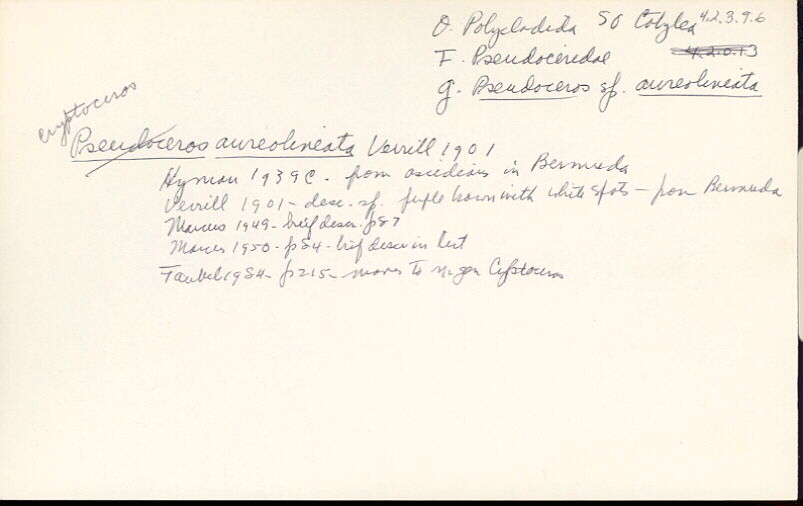 O. Polycladida SO Cotylea 4.2.3.9.6
F. Pseudoceridae 4.2.0.13
g. Pseudoceros sp. aureolineata
Cryptoceros
Pseudoceros aureolineata Verrill 1901
Hyman 1939C - from ascidians in Bermuda
Verrill 1901 - desc. sp. purple brown with white spots - from Bermuda
Marcus 1949 - brief descr. p87
Marcus 1950 - p84 - brief descr in list
Faubel 1984 - p215 - moves to n. gen Cryptoceros